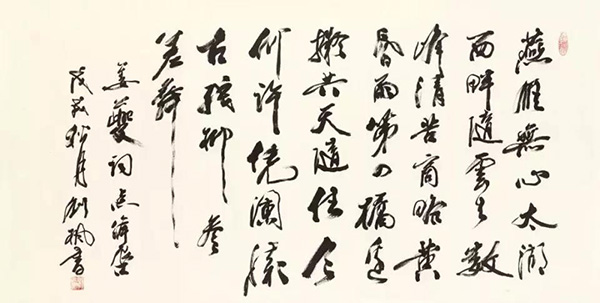 燕雁無心太湖
西畔隨雲去數
峰清苦商略黄
昏雨第四橋邊
擬共天隨住今
何許憑瀾懷
古殘柳参
差舞
姜夔詞点絳唇
月劉楓書